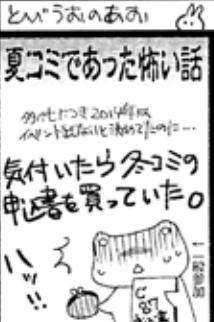 とびうおのあおい
夏コミであった怖い話
多忙につき2014年は
イベント出ないと決めてたのに…
気付いたら冬コミの
申込書を買っていた。
ハッ!!
C87